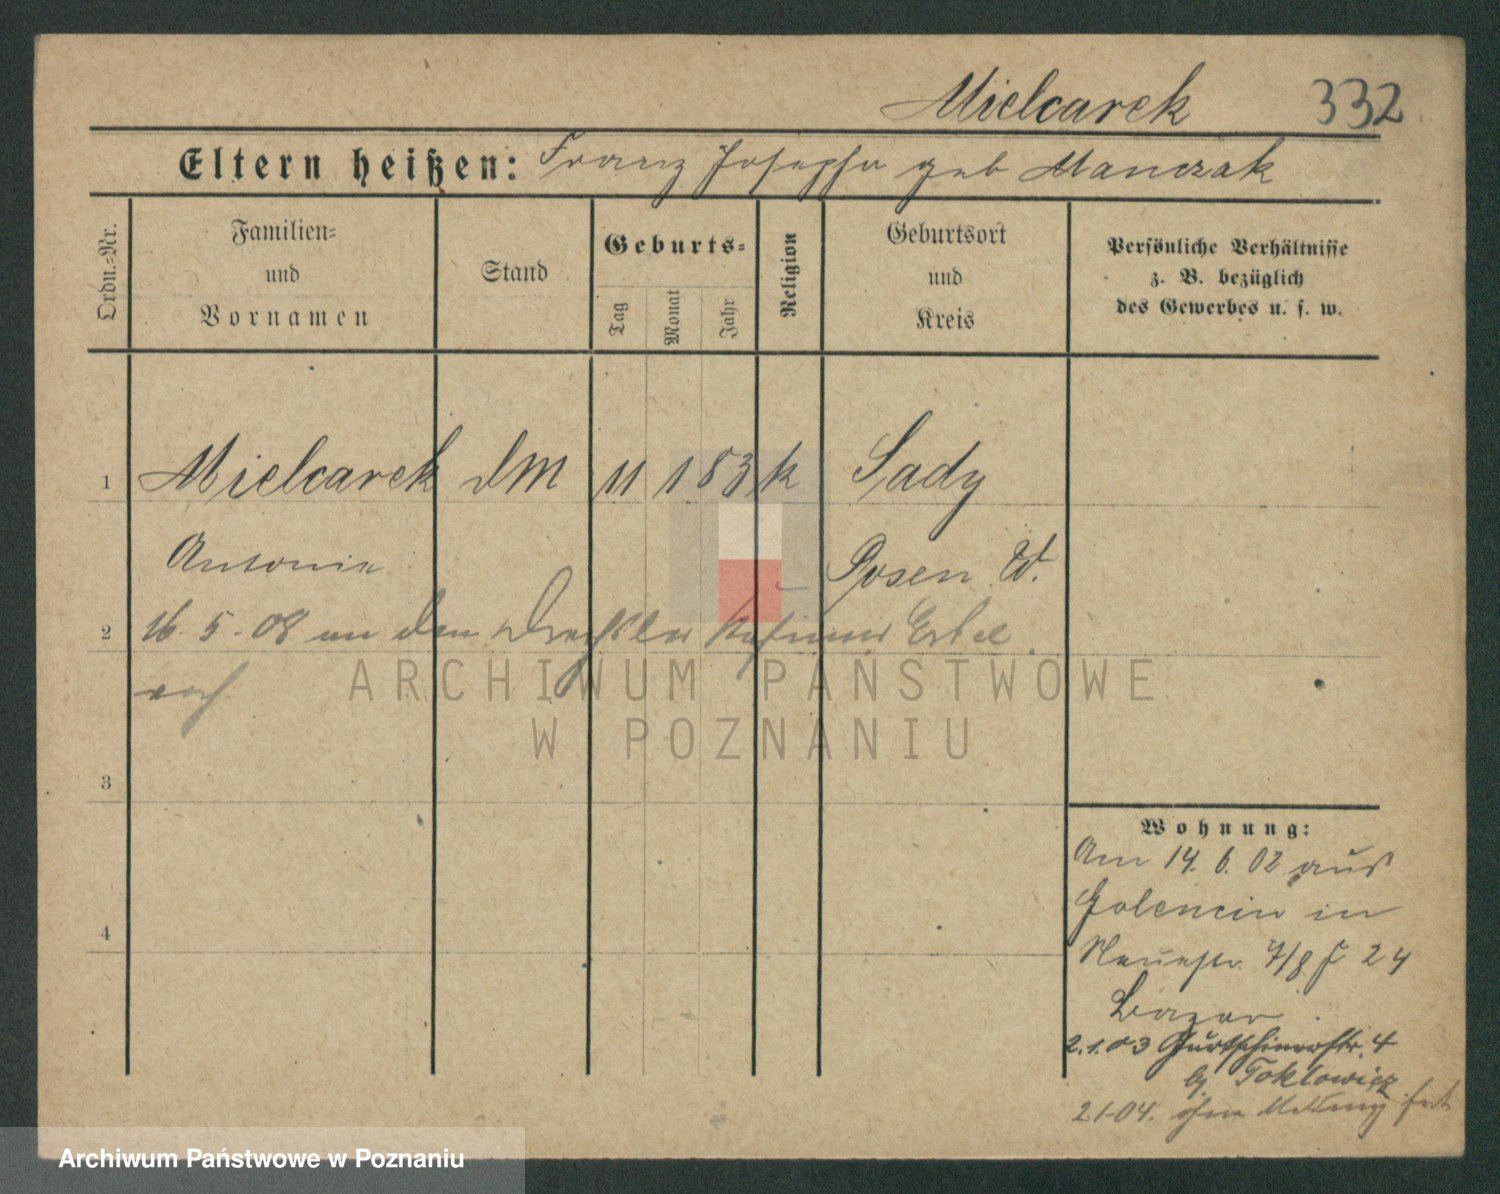 Mielcarek 332
Eltern heißen: Franz Josepha geb Manczak
Ordn.-Nr.
Familien-
und
Vornamen
Stand
Geburts-
Tag
Monat
Jahr
Religion
Geburtsort
und
Kreis
Persönliche Verhältnisse
z. B. bezüglich
des Gewerbes u. s. w.
1 Mielcarek dM 11 1 83 k Sady
Antonie Posen W.
2 16. 5. 08 an den Drechsler
3
4
ARCHIWUM PAŃSTWOWE
W POZNANIU
Wohnung:
Am 14. 6. 02 aus
Golencin in
Neuestr. 7/8 24
Bazar
2.1.03 Gurtschinerstr. 4
bj Toklowicz
2.1.04. ohne Meldung fort
Archiwum Państwowe w Poznaniu